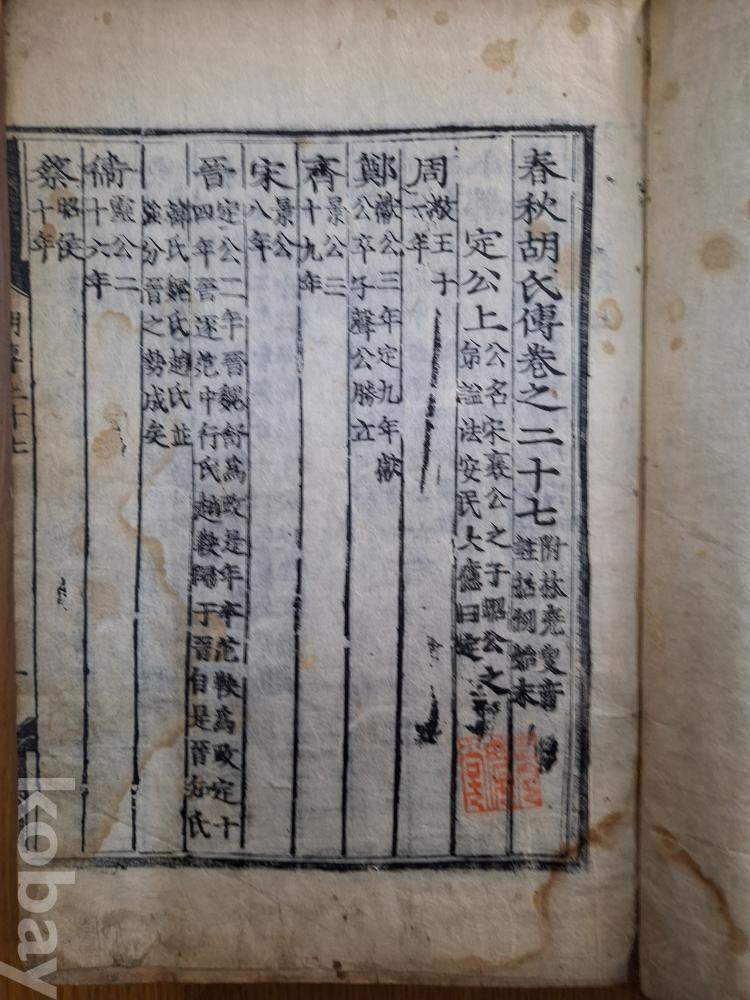 春秋胡氏傳卷之二十七 附林堯叟音註括例始末
定公上 公名宋襄公之子昭公之弟諡法安民大慮曰定
周 敬王十一年
鄭 獻公三年定九年獻公卒子聲公勝立
齊 景公三十九年
宋 景公八年
晉 定公二年晉魏舒為政是年卒范鞅為政定十四年晉逐范中行氏趙鞅歸于晉自是晉知氏
韓氏魏氏趙氏並強分晉之勢成矣
衛 靈公二十六年
蔡 昭侯十年
胡傳二十七
kobay